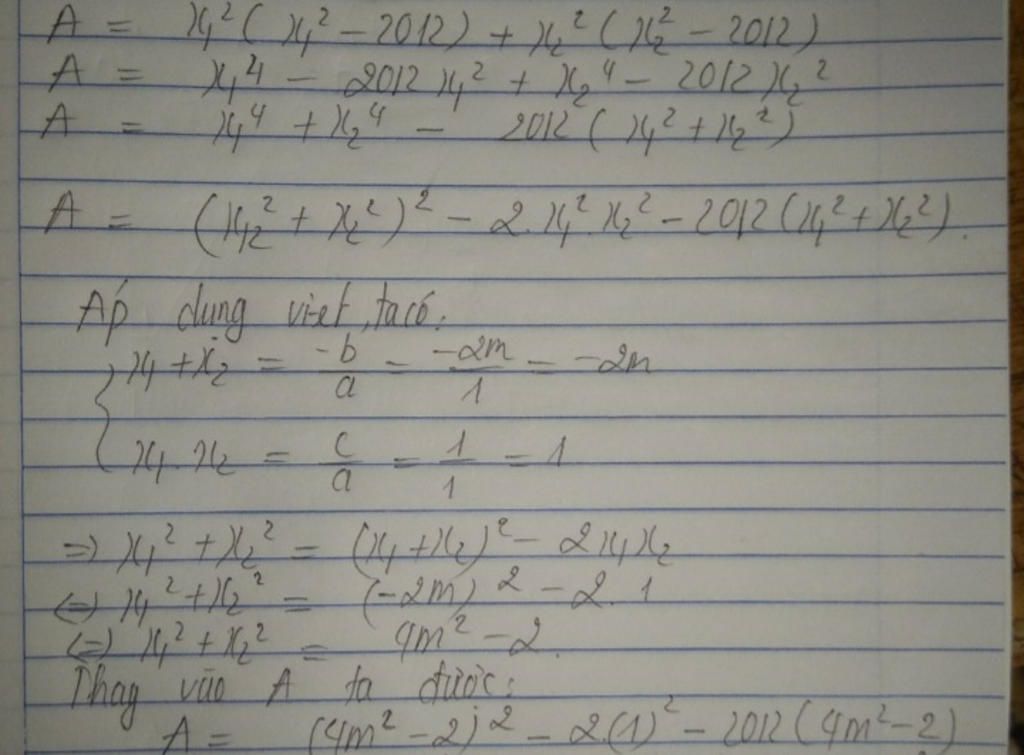 A = x₁²(x₁² - 2012) + x₂²(x₂² - 2012)
A = x₁⁴ - 2012x₁² + x₂⁴ - 2012x₂²
A = x₁⁴ + x₂⁴ - 2012(x₁² + x₂²)
A = (x₁² + x₂²)² - 2.x₁².x₂² - 2012(x₁² + x₂²).
Áp dụng vi-et, ta có:
{ x₁ + x₂ = -b/a = -2m/1 = -2m
x₁.x₂ = c/a = 1/1 = 1
=> x₁² + x₂² = (x₁ + x₂)² - 2x₁x₂
<=> x₁² + x₂² = (-2m)² - 2.1
<=> x₁² + x₂² = 4m² - 2.
Thay vào A ta được:
A = (4m² - 2)² - 2(1)² - 2012(4m² - 2)